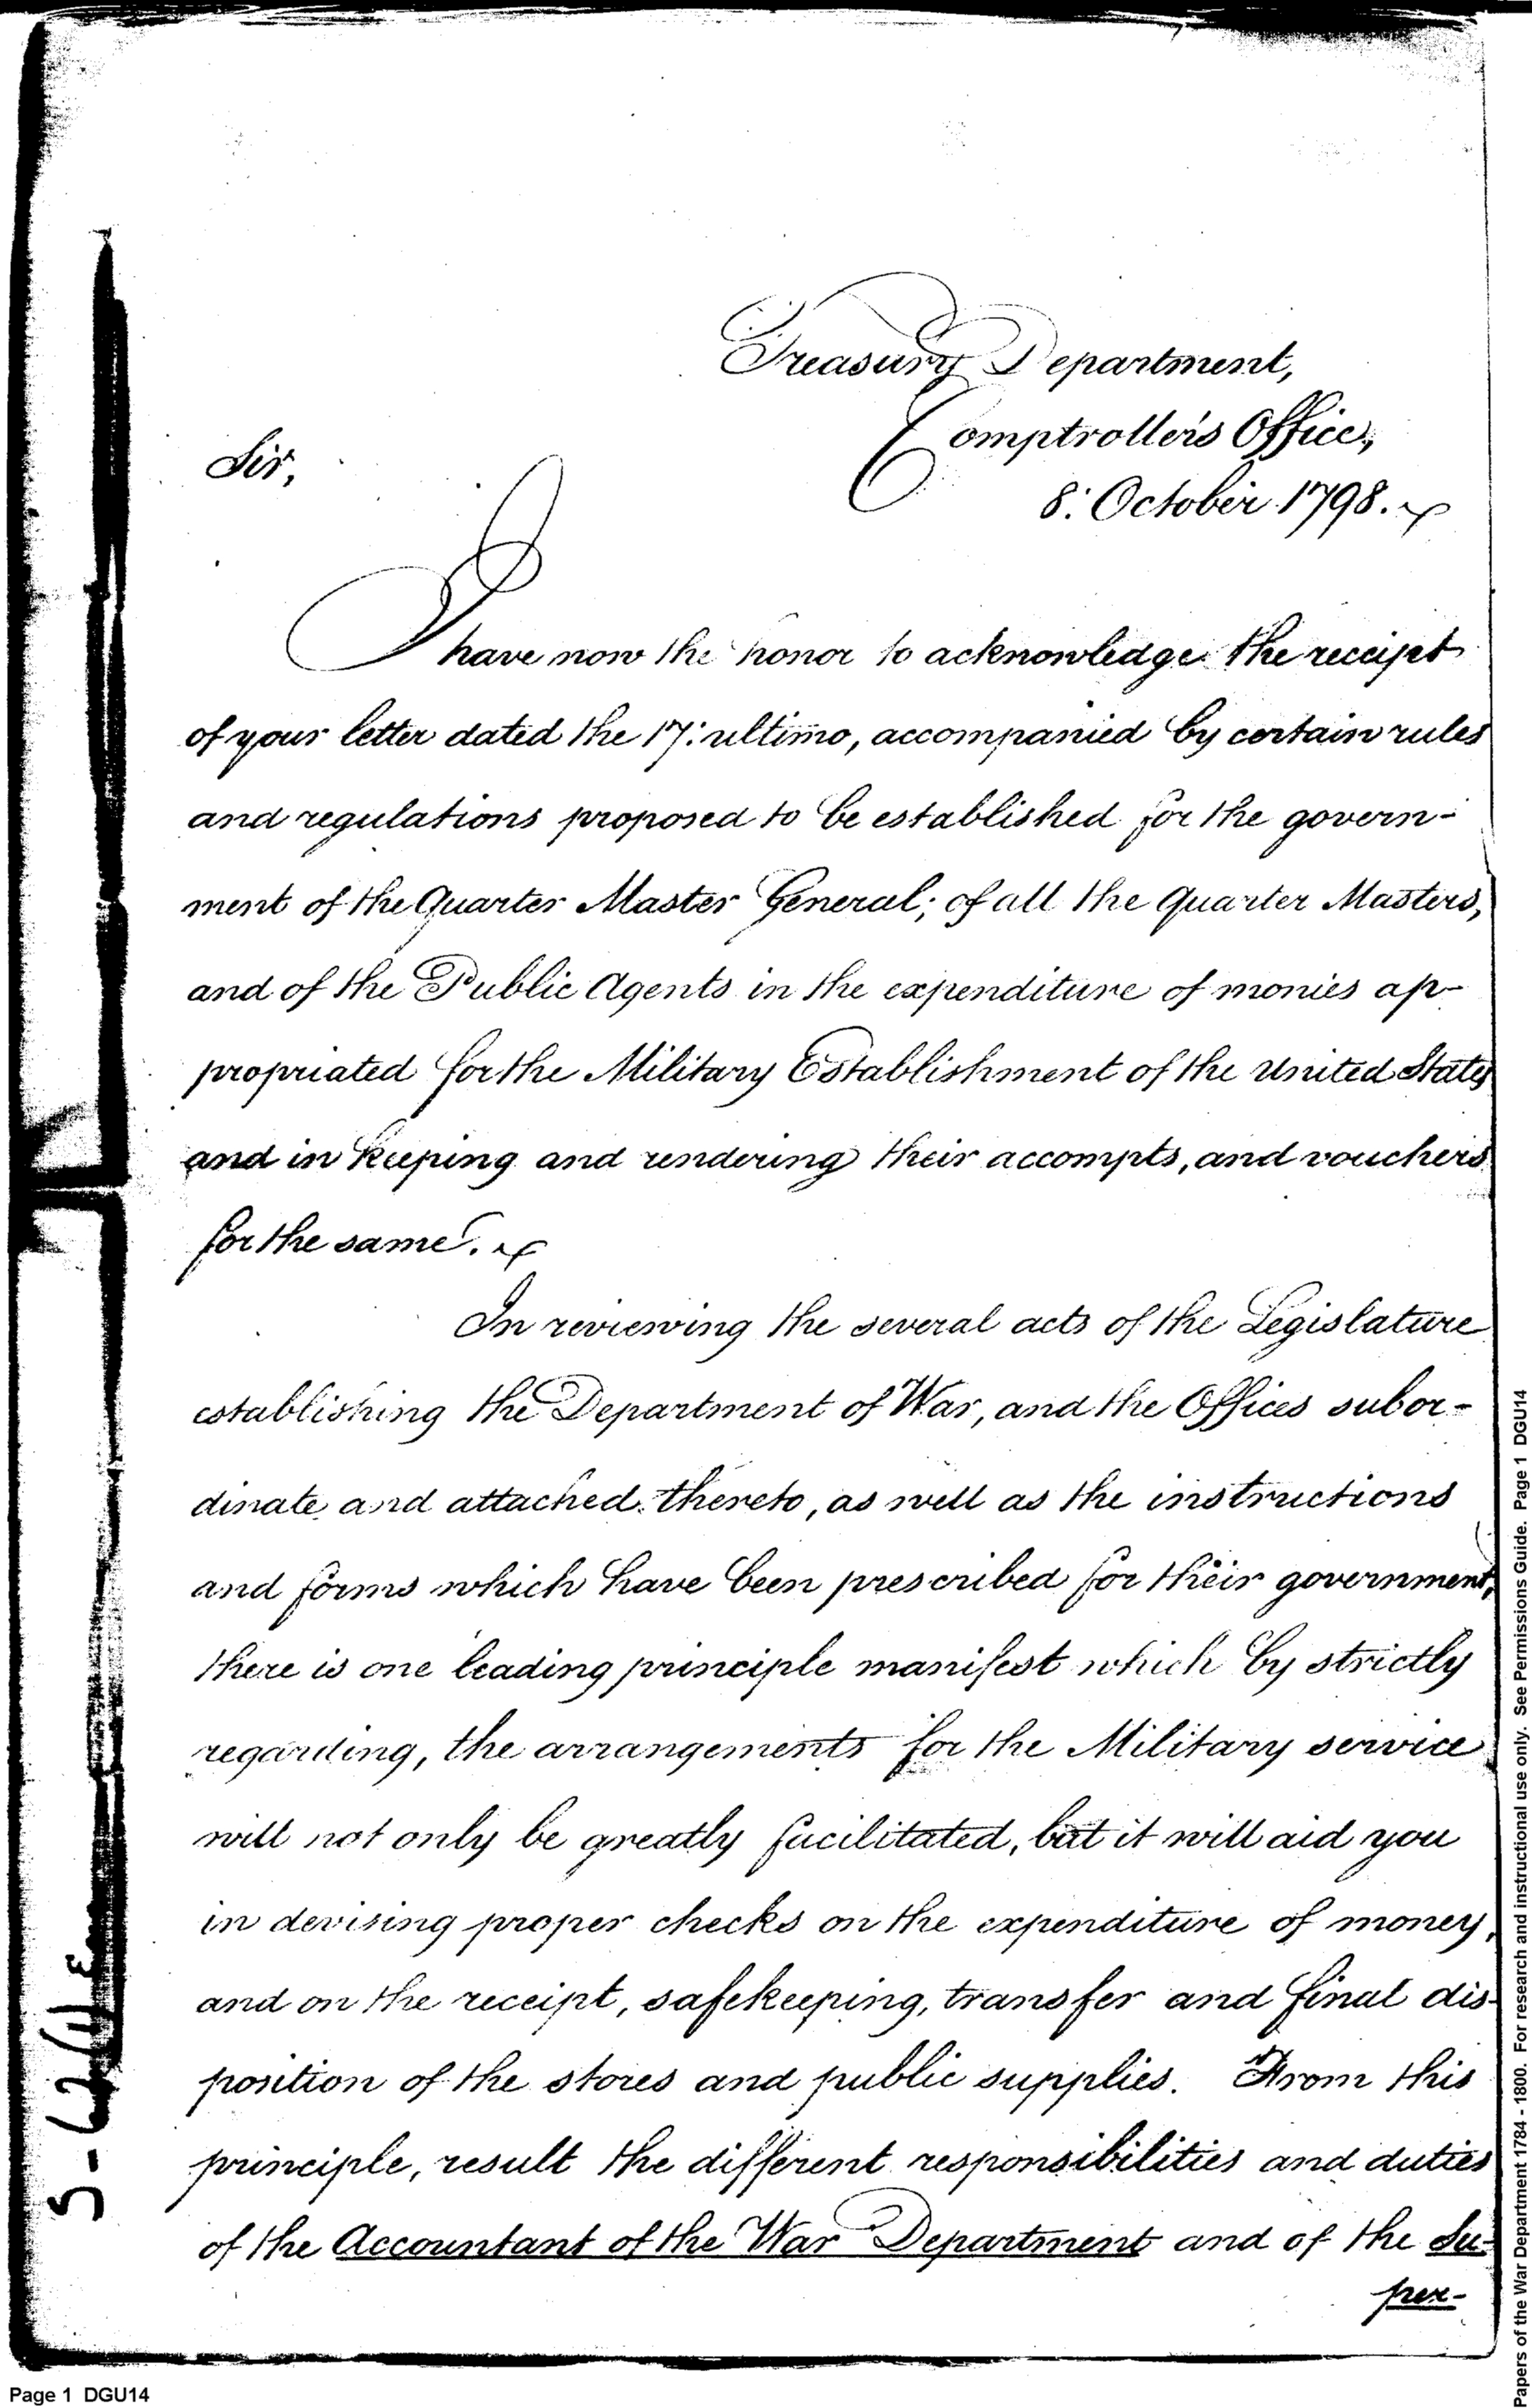 Treasury Department,
Comptroller's Office,
Sir,
8: October 1798.
I have now the honor to acknowledge the receipt
of your letter dated the 17: ultimo, accompanied by certain rules
and regulations proposed to be established for the govern-
ment of the Quarter Master General; of all the Quarter Masters,
and of the Public Agents in the expenditure of monies ap-
propriated for the Military Establishment of the United States
and in keeping and rendering their accompts, and vouchers
for the same.
In reviewing the several acts of the Legislature
establishing the Department of War, and the Offices subor-
dinate and attached thereto, as well as the instructions
and forms which have been prescribed for their government,
there is one leading principle manifest which by strictly
regarding, the arrangements for the Military service
will not only be greatly facilitated, but it will aid you
in devising proper checks on the expenditure of money,
and on the receipt, safekeeping, transfer and final dis-
position of the stores and public supplies. From this
principle, result the different responsibilities and duties
of the Accountant of the War Department and of the Su-
per-
Page 1 DGU14
Papers of the War Department 1784 - 1800. For research and instructional use only. See Permissions Guide. Page 1 DGU14